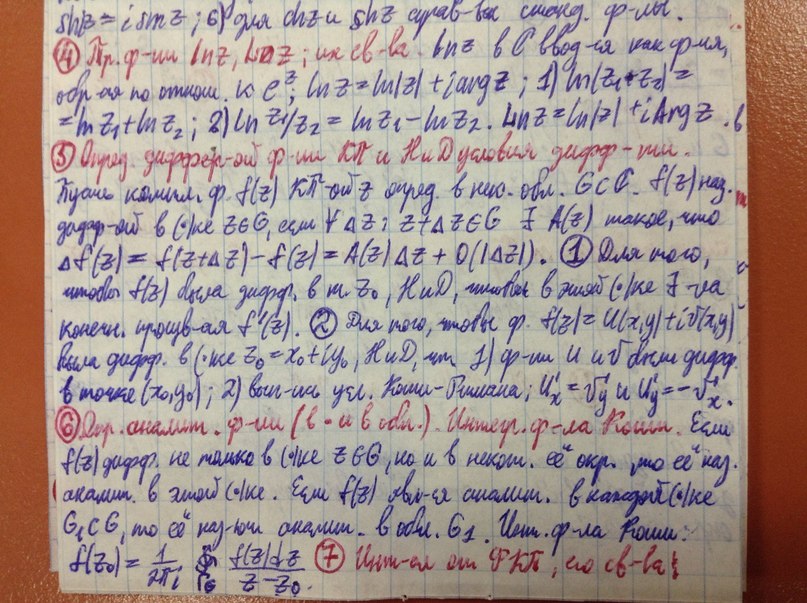 shz = i sin z ; 6) для chz и shz справ-вы станд. ф-лы.
④ Пр. ф-ии lnz, Lnz; их св-ва. lnz в C ввод-ся как ф-ия,
обр-ая по отнош. к e^z; lnz = ln|z| + i argz ; 1) ln(z₁·z₂) =
= ln z₁ + ln z₂ ; 2) ln z₁/z₂ = ln z₁ − ln z₂. Lnz = ln|z| + i Argz.
⑤ Опред. диффер-ой ф-ии КП и НиД условия дифф-ти.
Пусть компл. ф. f(z) КП-ой z опред. в нек. обл. G⊂C. f(z) наз.
дифф-ой в (·)ке z∈G, если ∀ Δz : z+Δz∈G ∃ A(z) такое, что
Δf(z) = f(z+Δz) − f(z) = A(z)Δz + O(|Δz|). ① Для того,
чтобы f(z) была дифф. в т. z₀, НиД, чтобы в этой (·)ке ∃-ла
конечн. произв-ая f'(z). ② Для того, чтобы ф. f(z) = U(x,y) + iV(x,y)
была дифф. в (·)ке z₀ = x₀ + iy₀, НиД, чт. 1) ф-ии U и V были дифф.
в точке (x₀,y₀) ; 2) вып-сь усл. Коши-Римана; U'x = V'y и U'y = −V'x.
⑥ Опр. аналит. ф-ии (в · и в обл.). Интегр. ф-ла Коши. Если
f(z) дифф. не только в (·)ке z∈G, но и в некот. её окр., то её наз.
аналит. в этой (·)ке. Если f(z) явл-ся аналит. в каждой (·)ке
G₁⊂G, то её наз-ют аналит. в обл. G₁. Инт. ф-ла Коши:
f(z₀) = 1/2πi ∮ f(z)dz / z − z₀. ⑦ Инт-ал от ФКП, его св-ва: